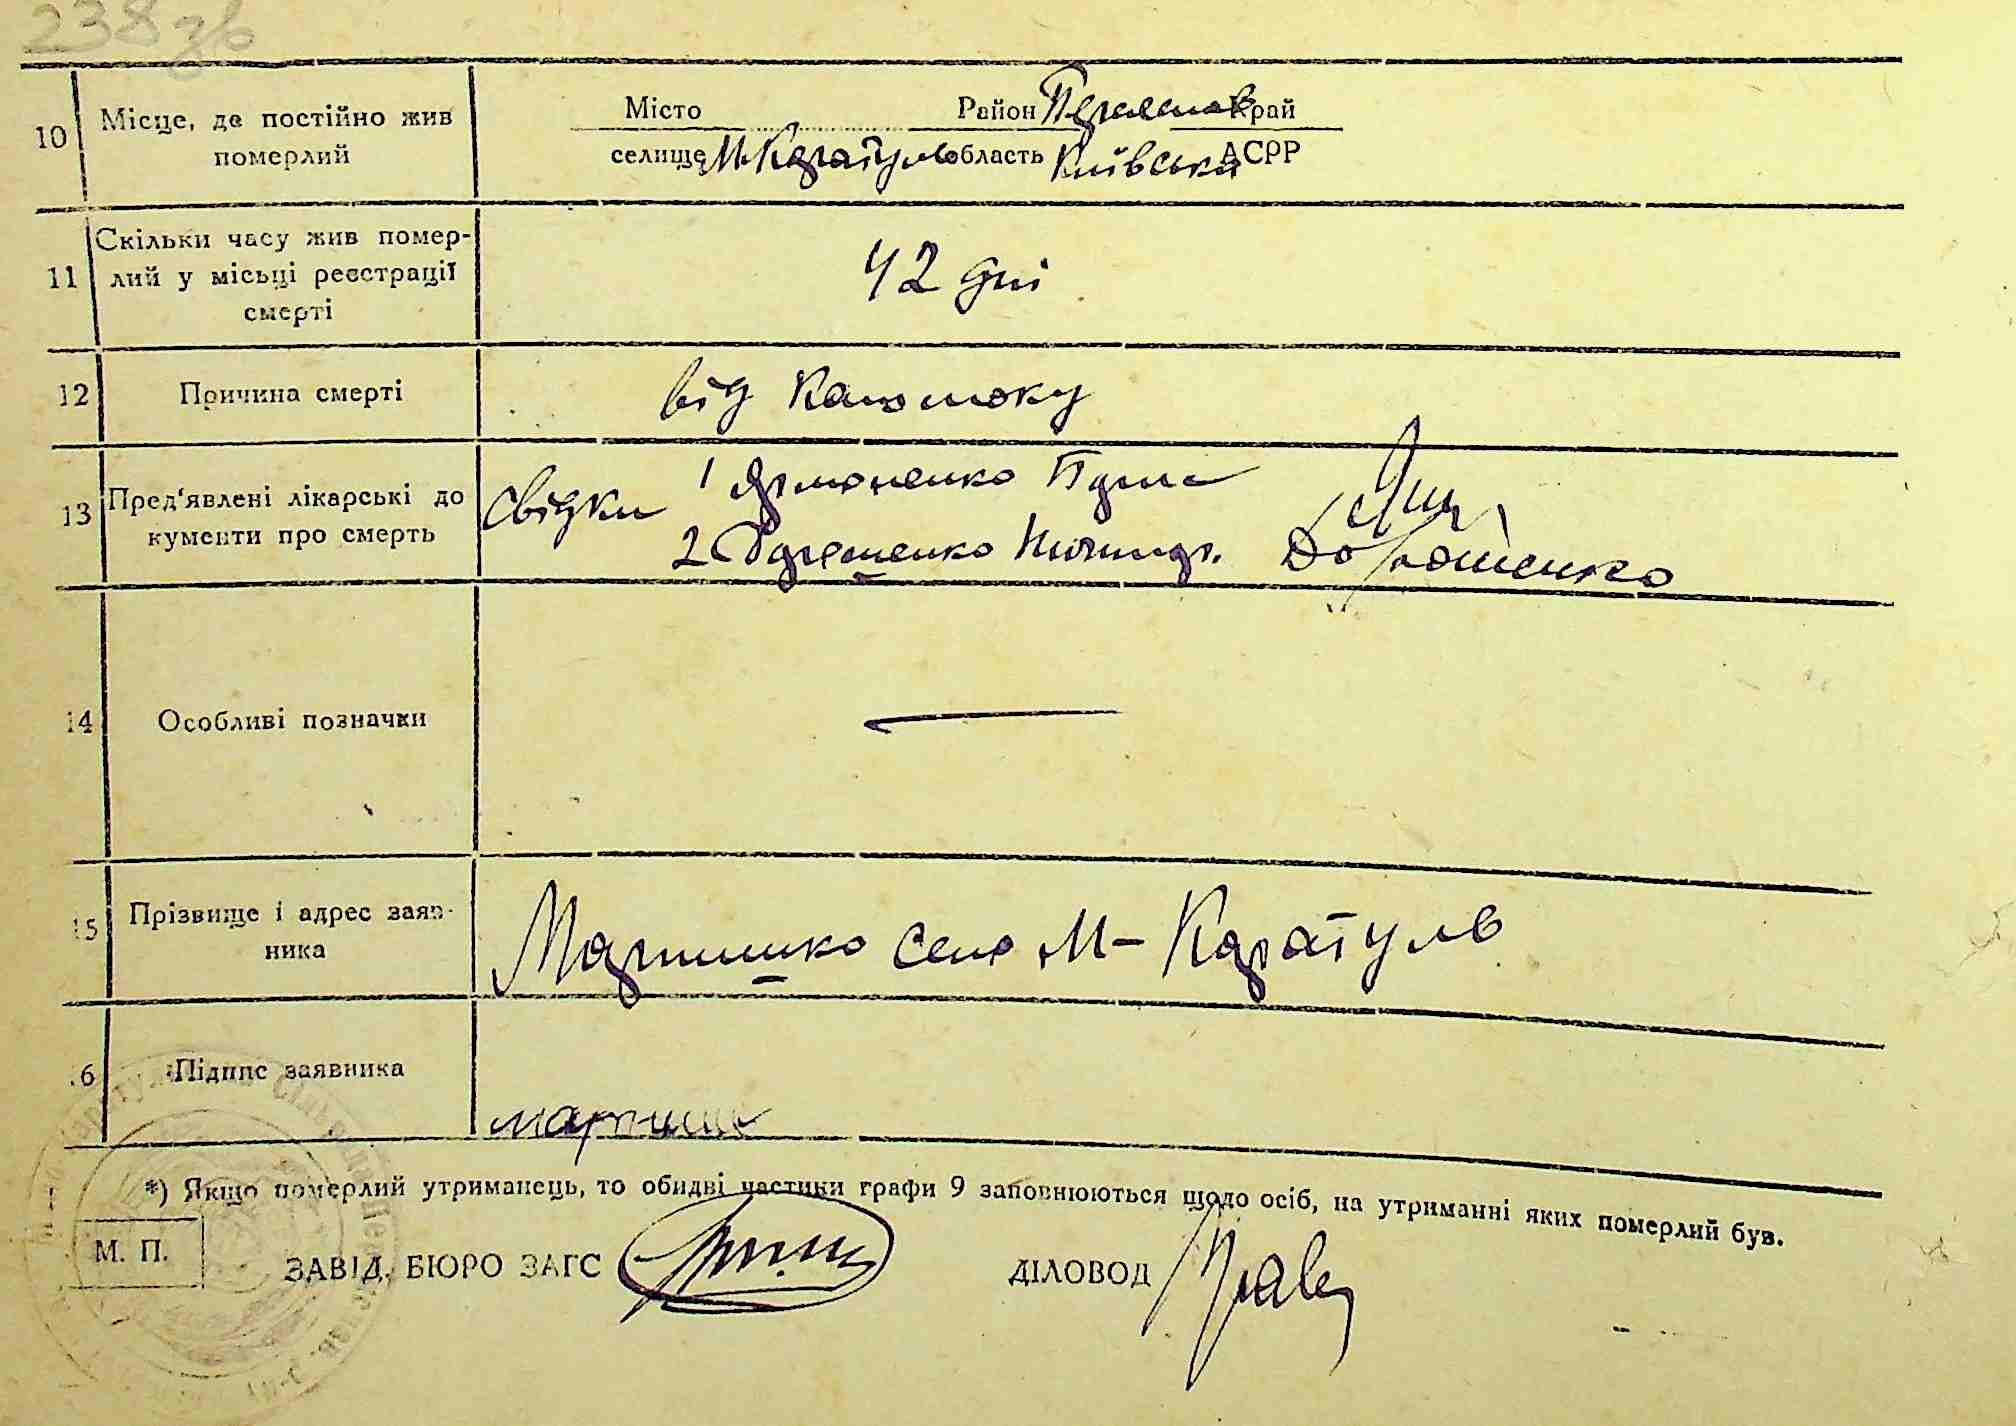 238 зв
10 Місце, де постійно жив померлий
Місто Район Переяслав Край
селище М-Каратуль область Київська АСРР
11 Скільки часу жив помер-
лий у місьці реєстрації
смерті
42 дні
12 Причина смерті
від
13 Пред'явлені лікарські до
кументи про смерть
свідки 1 Ярмоленко
2 Дорошенко Дорошенко
14 Особливі позначки
15 Прізвище і адрес заяв-
ника
село М-Каратуль
16 Підпис заявника
*) Якщо померлий утриманець, то обидві частини графи 9 заповнюються щодо осіб, на утриманні яких померлий був.
М. П. ЗАВІД. БЮРО ЗАГС ДІЛОВОД